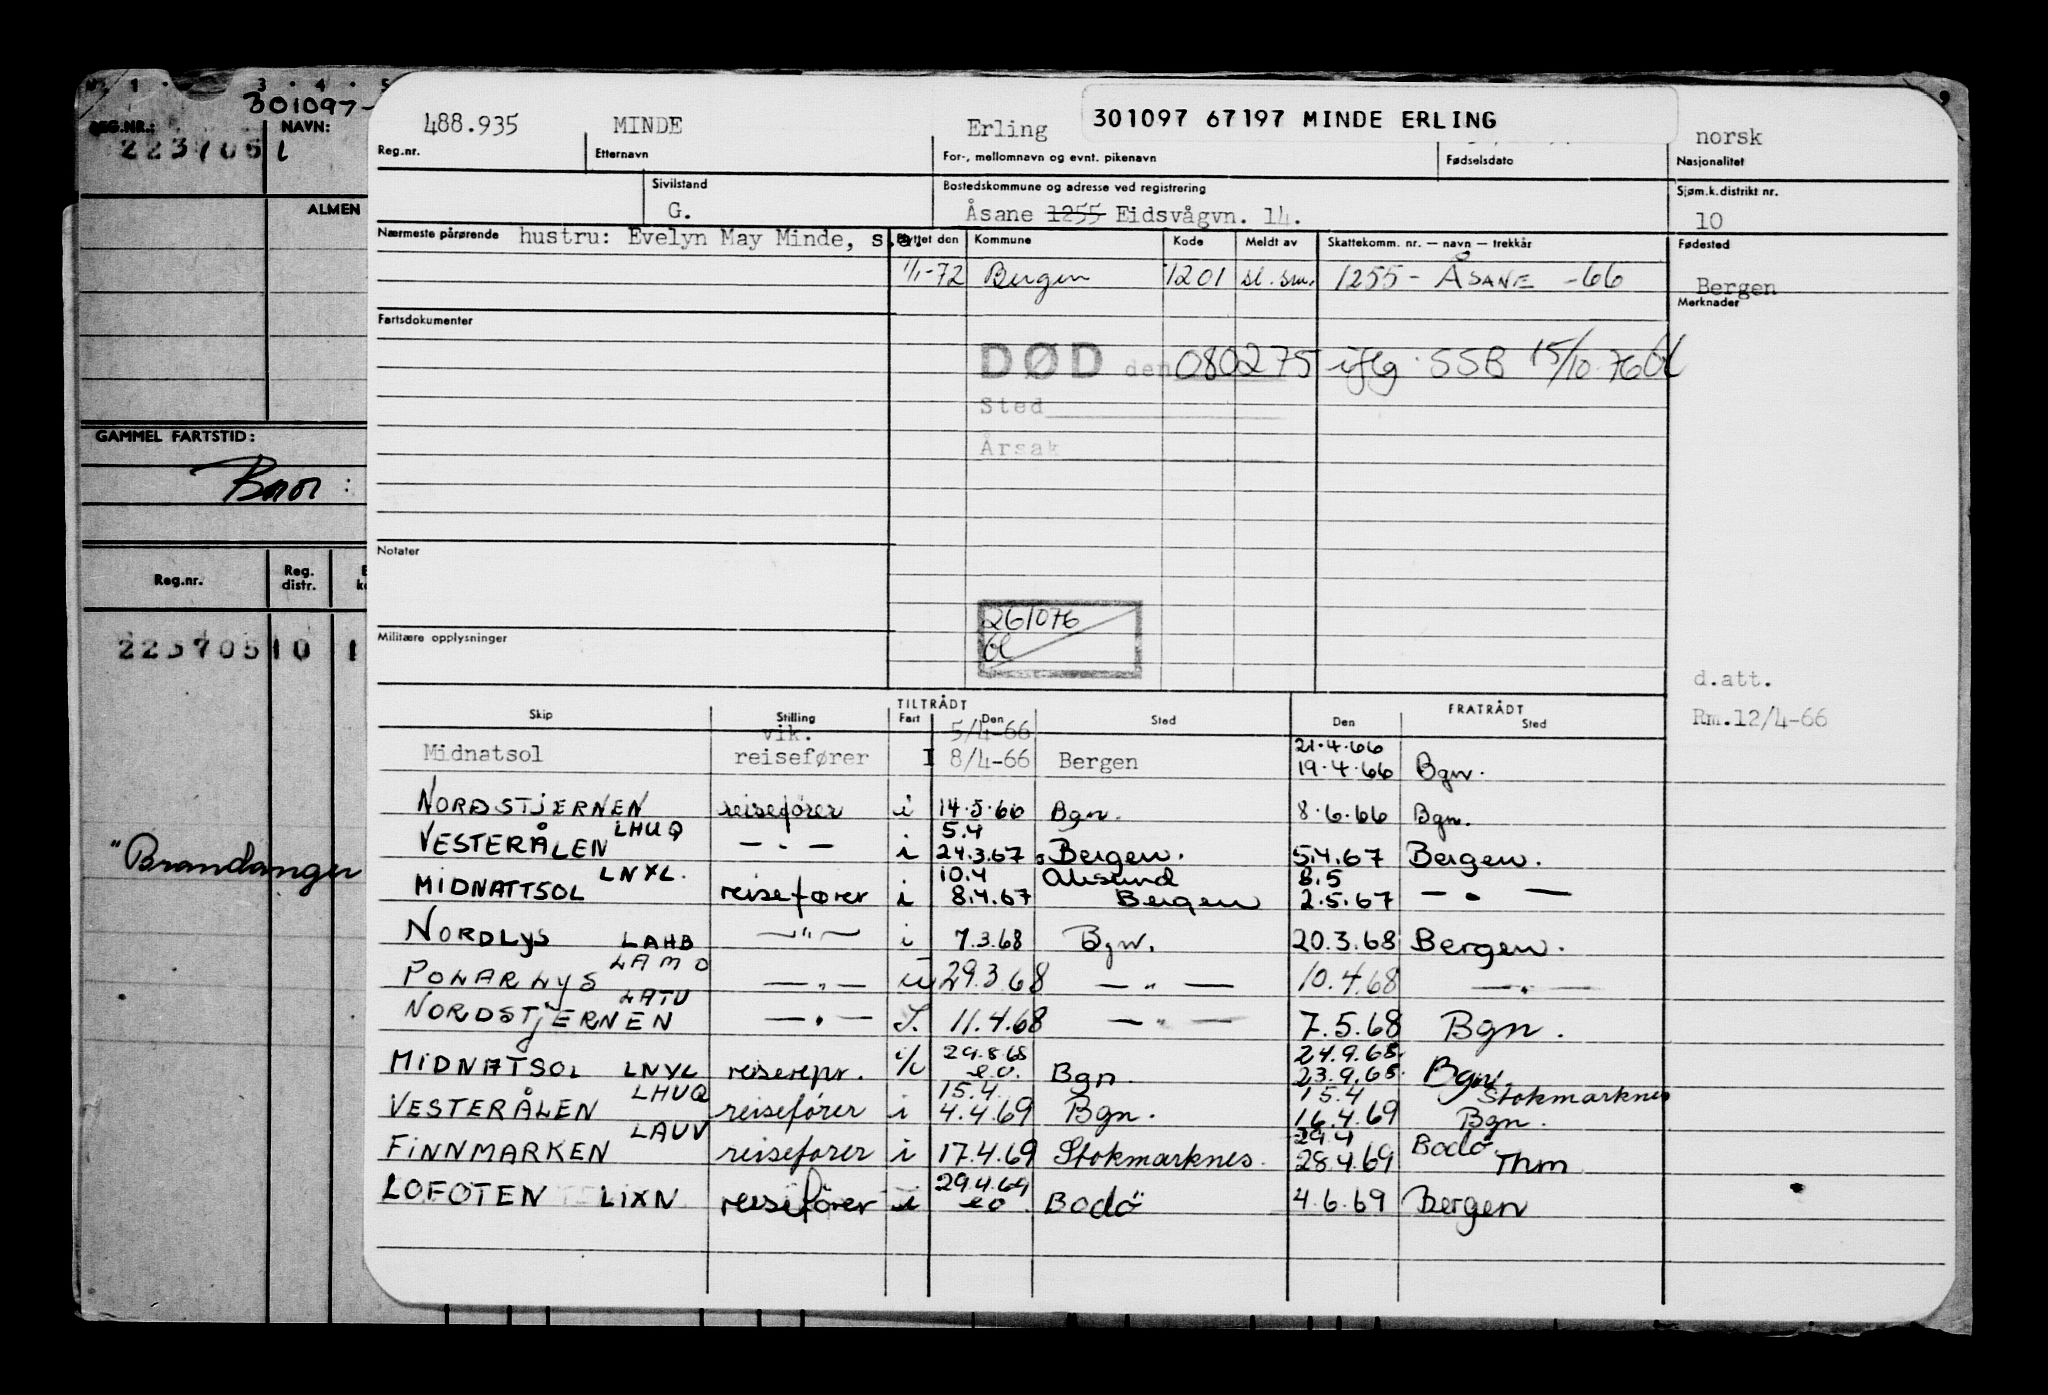 1 · 3 · 4 · 5
301097-
REG.NR.: NAVN:
2237051
ALMEN
GAMMEL FARTSTID:
Reg.nr. Reg. distr.
22370510 1
"Brandanger
9
488.935 MINDE Erling 301097 67197 MINDE ERLING norsk
Reg.nr. Etternavn For-, mellomnavn og evnt. pikenavn Fødselsdato Nasjonalitet
Sivilstand Bostedskommune og adresse ved registrering Sjøm.k.distrikt nr.
G. Åsane 1255 Eidsvågvn. 14. 10
Nærmeste pårørende hustru: Evelyn May Minde, s.a. Flyttet den Kommune Kode Meldt av Skattekomm. nr. — navn — trekkår Fødested
1/1-72 Bergen 1201 sl. sm. 1255 - ÅSANE -66 Bergen
Merknader
Fartsdokumenter
DØD den 080275 iflg. SSB 15/10-76 Ol
Sted
Årsak
Notater
261076
Ol
Militære opplysninger
d.att.
Rm.12/4-66
TILTRÅDT FRATRÅDT
Skip Stilling Fart Den Sted Den Sted
vik. 5/4-66 21.4.66
Midnatsol reisefører I 8/4-66 Bergen 19.4.66 Bgn.
NORDSTJERNEN reisefører i 14.5.66 Bgn. 8.6.66 Bgn.
LHUQ 5.4
VESTERÅLEN — . — i 24.3.67 Bergen. 5.4.67 Bergen.
LNYL. 10.4 Ålesund 8.5
MIDNATTSOL reisefører i 8.4.67 Bergen 2.5.67 — " —
NORDLYS LAHB — " — i 7.3.68 Bgn. 20.3.68 Bergen.
LAMO
POLARLYS — " — 29.3.68 — " — 10.4.68 — " —
LATU
NORDSTJERNEN — " — I. 11.4.68 — " — 7.5.68 Bgn.
29.8.68 24.9.68.
MIDNATSOL LNYL reiserepr. i/i e.o. Bgn. 23.9.68. Bgn.
LHUQ 15.4. 15.4 Stokmarknes
VESTERÅLEN reisefører i 4.4.69 Bgn. 16.4.69 Bgn.
LAUV 29.4 Bodø
FINNMARKEN reisefører i 17.4.69 Stokmarknes. 28.4.69 Thm
29.4.69
LOFOTEN LIXN reisefører i e.o Bodö 4.6.69 Bergen